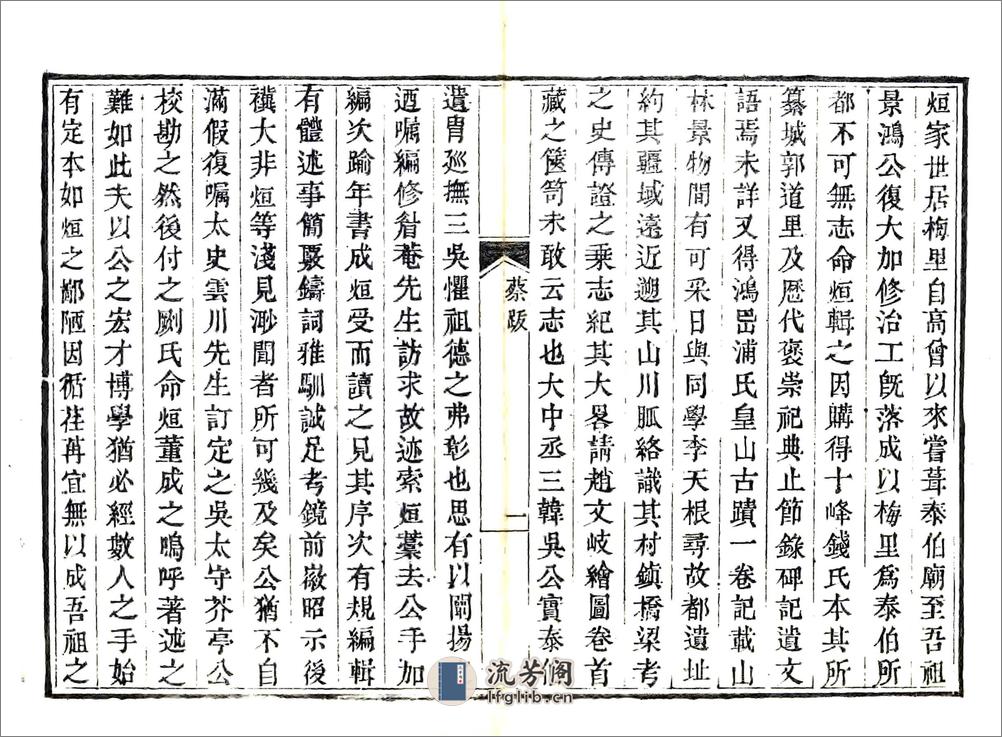 烜家世居梅里自高曾以來嘗葺泰伯廟至吾祖
景鴻公復大加修治工旣落成以梅里爲泰伯所
都不可無志命烜輯之因購得十峰錢氏本其所
纂城郭道里及歷代褒崇祀典止節錄碑記遺文
語焉未詳又得鴻岊浦氏皇山古蹟一卷記載山
林景物間有可采日與同學李天根尋故都遺址
約其疆域遠近遡其山川脈絡識其村鎮橋梁考
之史傳證之乘志紀其大畧請趙文岐繪圖卷首
藏之篋笥未敢云志也大中丞三韓吳公實泰
蔡跋
一
遺胄廵撫三吳懼祖德之弗彰也思有以闡揚
迺囑編修耛菴先生訪求故迹索烜藁去公手加
編次踰年書成烜受而讀之見其序次有規編輯
有體述事簡覈鑄詞雅馴誠足考鏡前徽昭示後
禩大非烜等淺見渺聞者所可幾及矣公猶不自
滿假復囑太史雲川先生訂定之吳太守芥亭公
校勘之然後付之剞氏命烜董成之嗚呼著述之
難如此夫以公之宏才博學猶必經數人之手始
有定本如烜之鄙陋因循荏苒宜無以成吾祖之
流芳阁
lfglib.cn